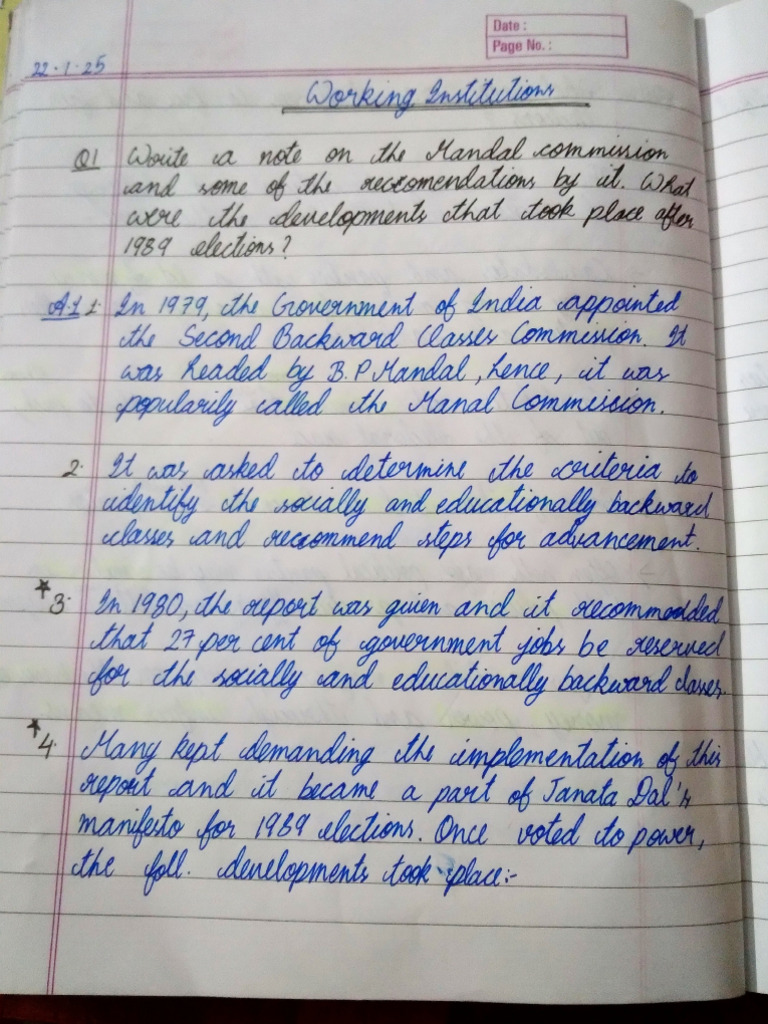 Date :
Page No. :
22.1.25
Working Institutions
Q1 Write a note on the Mandal commission
and some of the reccomendations by it. What
were the developments that took place after
1989 elections?
A.1 1. In 1979, the Government of India appointed
the Second Backward Classes Commission. It
was headed by B.P Mandal, hence, it was
popularily called the Manal Commission.
2. It was asked to determine the criteria to
identify the socially and educationally backward
classes and reccommend steps for advancement.
*3. In 1980, the report was given and it recommended
that 27 per cent of government jobs be reserved
for the socially and educationally backward classes.
*4. Many kept demanding the implementation of this
report and it became a part of Janata Dal's
manifesto for 1989 elections. Once voted to power,
the foll. developments took place:-